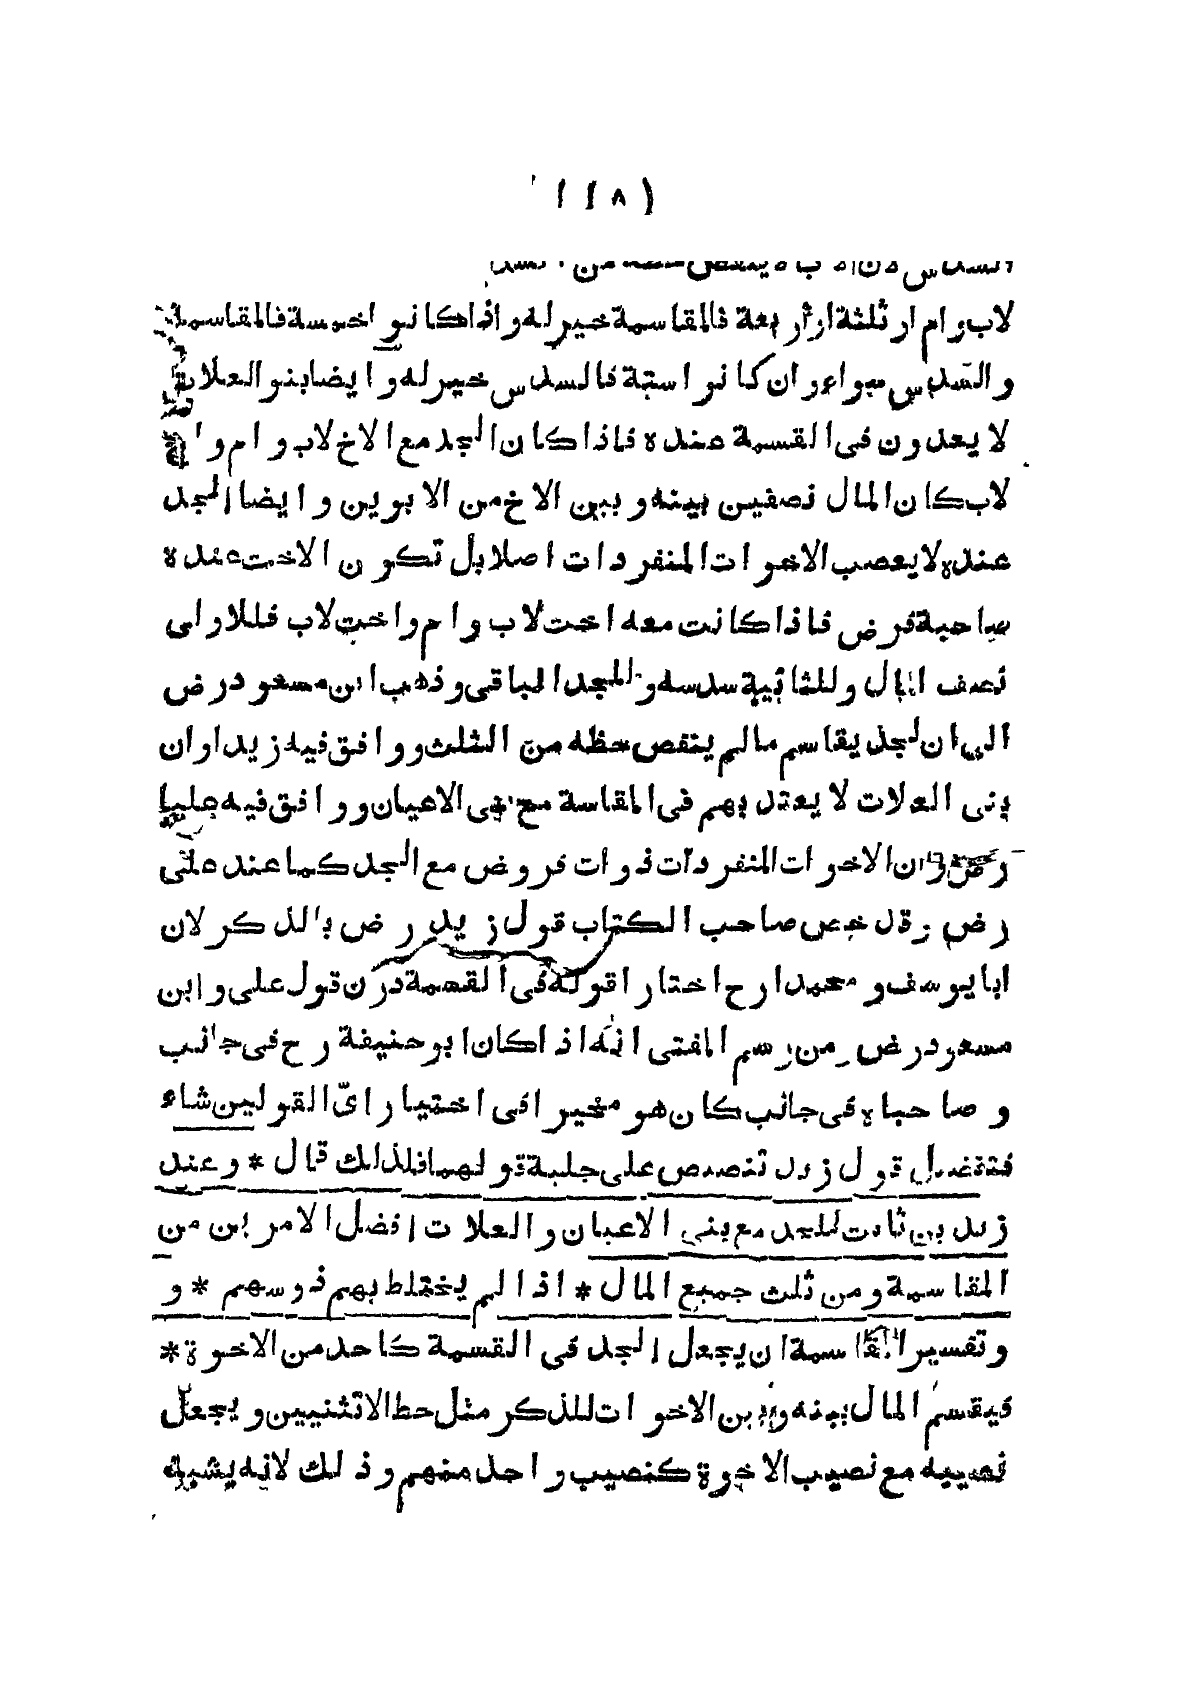 ( ١١٨ )
لاب وام او ثلثة او اربعة فالمقاسمة خير له واذا كانوا خمسة فالمقاسمة
والسدس سواء وان كانوا ستة فالسدس خير له وايضا بنو العلات
لا يعدون فى القسمة عنده فاذا كان الجد مع الاخ لاب وام و
لاب كان المال نصفين بينه وبين الاخ من الابوين وايضا الجد
عنده لا يعصب الاخوات المنفردات اصلا بل تكون الاخت عنده
صاحبة فرض فاذا كانت معه اخت لاب وام واخت لاب فللاولى
نصف المال وللثانية سدسه وللجد الباقى وذهب ابن مسعود رض
الى ان لجد يقاسم مالم ينقص حظه من الثلث ووافق فيه زيدا وان
بنى العلات لا يعتد بهم فى المقاسة مع بنى الاعيان ووافق فيه عليا
رض وان الاخوات المنفردات ذوات فروض مع الجد كما عند على
رض وقد خص صاحب الكتاب قول زيد رض بالذكر لان
ابا يوسف و محمدا رح اختارا قوله فى القسمة دون قول على وابن
مسعود رض ومن رسم المفتى انه اذا كان ابو حنيفة رح فى جانب
وصاحباه فى جانب كان هو مخيرا فى اختيار اىّ القولين شاء
قول زيد تنصيص على جلية قولهما فلذلك قال * وعند
زيد بن ثابت للجد مع بنى الاعيان والعلات افضل الامرين من
المقاسمة ومن ثلث جميع المال * اذا لم يختلط بهم ذو سهم * و
وتفسير المقاسمة ان يجعل الجد فى القسمة كاحد من الاخوة *
فيقسم المال بينه وبين الاخوات للذكر مثل حظ الانثيين ويجعل
نصيبه مع نصيب الاخوة كنصيب واحد منهم وذلك لانه يشبه